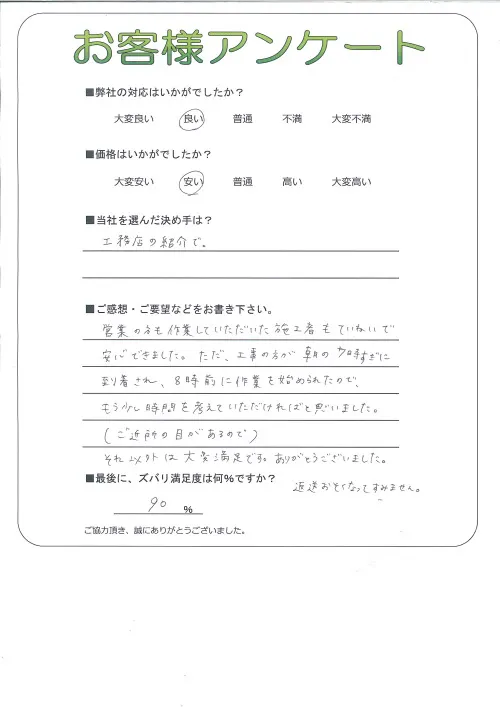 お客様アンケート
■弊社の対応はいかがでしたか？
大変良い 良い 普通 不満 大変不満
■価格はいかがでしたか？
大変安い 安い 普通 高い 大変高い
■当社を選んだ決め手は？
工務店の紹介で。
■ご感想・ご要望などをお書き下さい。
営業の方も作業していただいた施工者もていねいで
安心できました。ただ、工事の方が朝の7時すぎに
到着され、8時前に作業を始められたので、
もう少し時間を考えていただければと思いました。
(ご近所の目があるので)
それ以外は大変満足です。ありがとうございました。
■最後に、ズバリ満足度は何%ですか？
返送おそくなってすみません。
90 %
ご協力頂き、誠にありがとうございました。